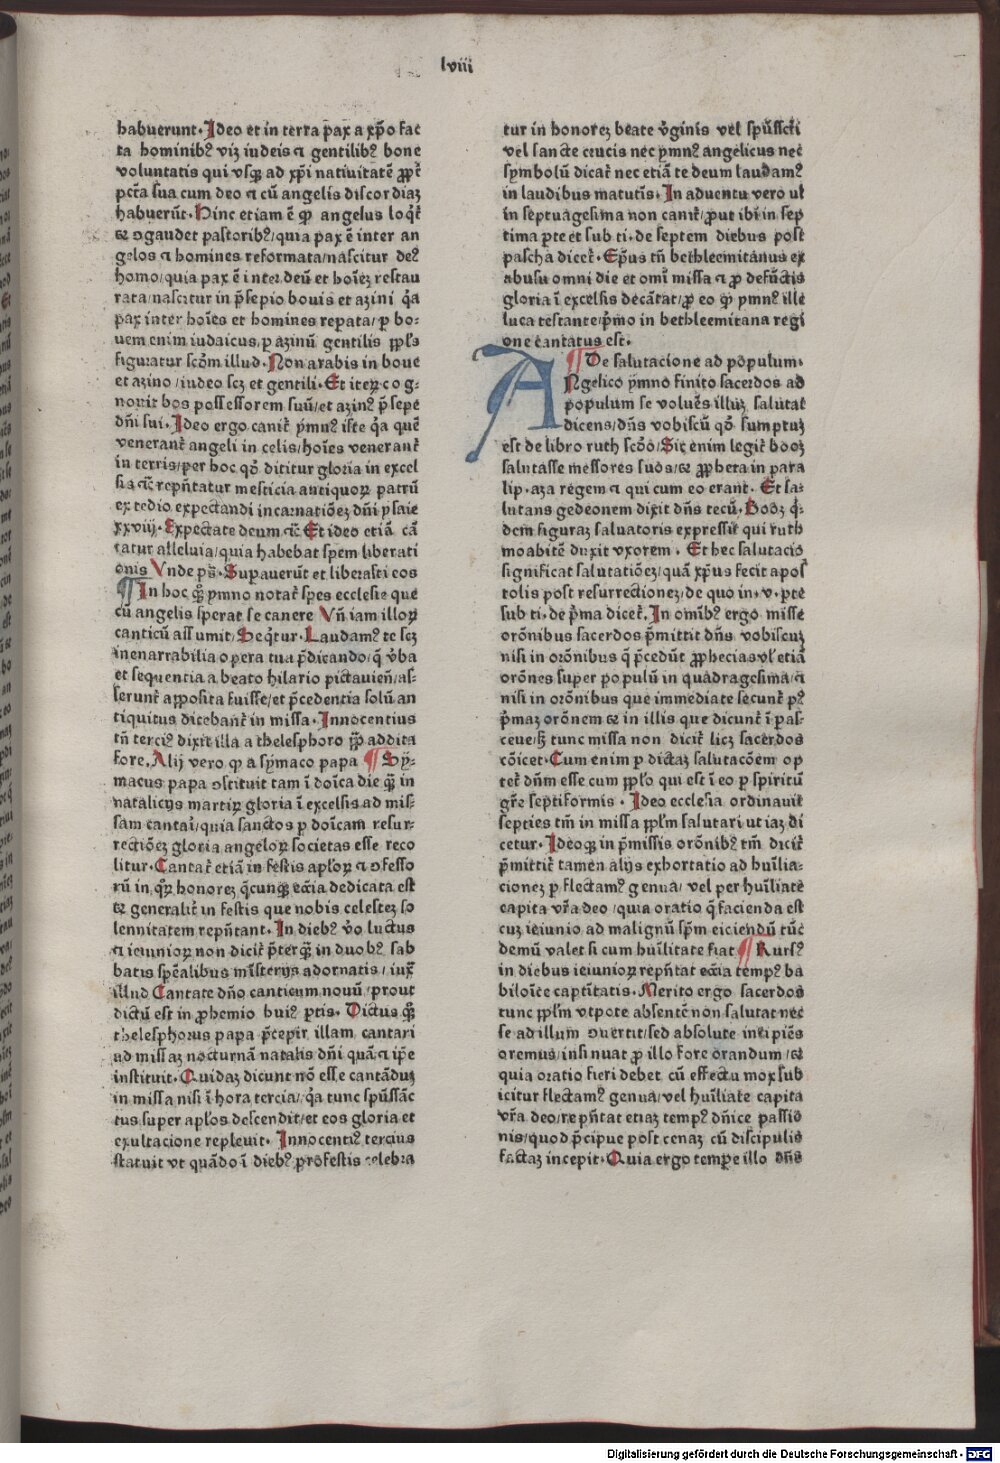 lviii
habuerunt. Ideo et in terra pax a xp̄o fac
ta hominibꝰ viꝫ iudeis ⁊ gentilibꝰ bone
voluntatis qui vsqꝫ ad xp̄i natiuitatē ꝓpt̄
pctā sua cum deo ⁊ cū angelis discordiaꝫ
habuer̄t. Hinc etiam ē ꝙ angelus loqt̄
⁊ ꝯgaudet pastoribꝰ/quia pax ē inter an
gelos ⁊ homines reformata/nascitur deꝰ
homo/quia pax ē inter deū et hoīeꝫ restau
rata/nascitur in p̄sepio bouis et azini q̇a
pax inter hoīes et homines repata/ꝑ bo⸗
uem enim iudaicus/ꝑ azinū gentilis ppl̄s
figuratur scd̄m illud. Non arabis in boue
et azino/iudeo scꝫ et gentili. Et iteꝝ cog⸗
nouit bos possessorem suū/et azinꝰ p̄sepe
dn̄i sui. Ideo ergo canit̄ ymnꝰ iste q̇a quē
venerant̄ angeli in celis/hoīes venerant̄
in terris/per hoc qd̄ dicitur gloria in excel
sis ⁊c̄ rep̄ntatur mesticia antiquoꝝ patrū
ex tedio expectandi incarnatiōeꝫ dn̄i ysaie
xxviij. Expectate deum ⁊c̄ Et ideo etiā cā
tatur alleluia/quia habebat spem liberati
onis Vnde pṡ. Supauer̄t et liberasti eos
¶ In hoc qꝫ ymno notat̄ spes ecclesie que
cū angelis sperat se canere Vn̄ iam illoꝝ
canticū assumit/Seqtur. Laudamꝰ te scꝫ
inenarrabilia opera tua p̄dicando/q̄ v̄ba
et sequentia a beato hilario pictauien̄/as⸗
serunt̄ apposita fuisse/et p̄cedentia solū an
tiquitus dicebant̄ in missa. Innocentius
tn̄ tercꝰ dixit illa a thelesphoro pp̄ addita
fore. Alij vero ꝙ a symaco papa ¶ Sy⸗
macus papa ꝯstituit tam ī doīca die qꝫ in
natalicijs martiꝝ gloria ī excelsis ad mis⸗
sam cantari/quia sanctos ꝑ doīcam resur⸗
rectiōeꝫ gloria angeloꝝ societas esse reco
litur. Cantat̄ etiā in festis apl̄oꝝ ⁊ ꝯfesso
rū in qꝝ honoreꝫ qcunqꝫ eccīa dedicata est
⁊ generalit̄ in festis que nobis celesteꝫ so
lennitatem rep̄ntant. In diebꝰ v̄o luctus
⁊ ieiunioꝝ non dicit̄ p̄terqꝫ in duobꝰ sab
batis sp̄ealibus mīsterijs adornatis/iux̄
illud Cantate dn̄o canticum nouū/prout
dictū est in ꝓhemio huiꝰ ꝑtis. Dictus qꝫ
thelesphorus papa p̄cepit illam cantari
ad missaꝫ nocturnā natalis dn̄i quā ⁊ ip̄e
instituit. Quidaꝫ dicunt nō esse cantāduꝫ
in missa nisi ī hora tercia/q̇a tunc spūssāc
tus super apl̄os descendit/et eos gloria et
exultacione repleuit. Innocentiꝰ tercius
statuit vt quādo ī diebꝰ profestis celebra
tur in honoreꝫ beate v̄ginis vel spūsscti
vel sancte crucis nec ymnꝰ angelicus nec
symbolū dicat̄ nec etiā te deum laudamꝰ
in laudibus matutīs. In aduentu vero ul
in septuagesima non canit̄/ꝓut ibi in sep
tima ꝑte et sub ti. de septem diebus post
pascha dicet̄. Ep̄us tn̄ bethleemitanus ex
abusu omni die et omī missa ⁊ ꝓ defūctis
gloria ī excelsis decātat/ꝓ eo ꝙ ymnꝰ ille
luca testante/p̄mo in bethleemitana regi
one cantatus est.
¶ De salutacione ad populum.
Angelico ymno finito sacerdos ad
populum se voluēs illuꝫ salutat
dicens/dn̄s vobiscū qd̄ sumptuꝫ
est de libro ruth scd̄o/Sic enim legit̄ booꝫ
salutasse messores suos/⁊ ꝓpheta in para
lip. aza regem ⁊ qui cum eo erant. Et sa⸗
lutans gedeonem dixit dn̄s tecū. Booꝫ q̇⸗
dem figuraꝫ saluatoris expressit qui ruth
moabitē duxit vxorem. Et hec salutacio
significat salutatiōeꝫ/quā xp̄us fecit apos
tolis post resurrectioneꝫ/de quo in. v. ꝑte
sub ti. de p̄ma dicet̄. In omībꝰ ergo misse
orōnibus sacerdos p̄mittit dn̄s vobiscuꝫ
nisi in orōnibus q̄ p̄cedūt ꝓphecias vl̄ etiā
orōnes super populū in quadragesima/⁊
nisi in orōnibus que immediate secunt̄ pꝰ
p̄maꝫ orōnem ⁊ in illis que dicunt̄ ī pas⸗
ceue/sꝫ tunc missa non dicit̄ licꝫ sacerdos
cōicet. Cum enim ꝑ dictaꝫ salutacōem op
tet̄ dn̄m esse cum ppl̄o qui est ī eo ꝑ spiritū
gr̄e septiformis. Ideo ecclesia ordinauit
septies tm̄ in missa ppl̄m salutari ut iaꝫ di
cetur. Ideoqꝫ in p̄missis orōnibꝰ tm̄ dicit̄
p̄mittit̄ tamen alijs exhortatio ad hūilia⸗
cioneꝫ ꝑ flectamꝰ genua/vel per hūiliate
capita vr̄a deo/quia oratio q̄ facienda est
cuꝫ ieiunio ad malignū spm̄ eiciendū tūc
demū valet si cum hūilitate fiat ¶ Rursꝰ
in diebus ieiunioꝝ rep̄ntat eccīa tempꝰ ba
biloīce captītatis. Merito ergo sacerdos
tunc ppl̄m vtpote absentē non salutat nec
se ad illum ꝯuertit/sed absolute incipiēs
oremus/insinuat ꝓ illo fore orandum/⁊
quia oratio fieri debet cū effectu mox sub
icitur flectamꝰ genua/vel hūiliate capita
vr̄a deo/rep̄ntat etiaꝫ tempꝰ dn̄ice passio
nis/quod p̄cipue post cenaꝫ cū discipulis
factaꝫ incepit. Quia ergo tempe illo dn̄s
Digitalisierung gefördert durch die Deutsche Forschungsgemeinschaft - DFG